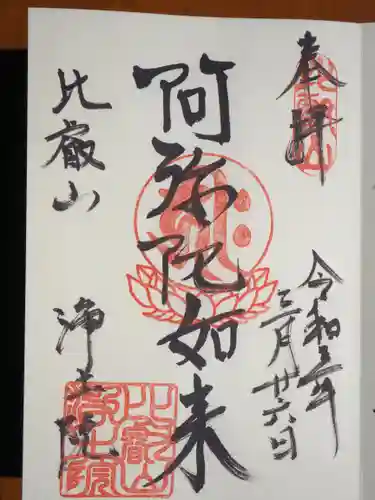 奉拝
令和三年
三月廿六日
阿弥陀如来
比叡山
浄土院
比叡山
浄土院